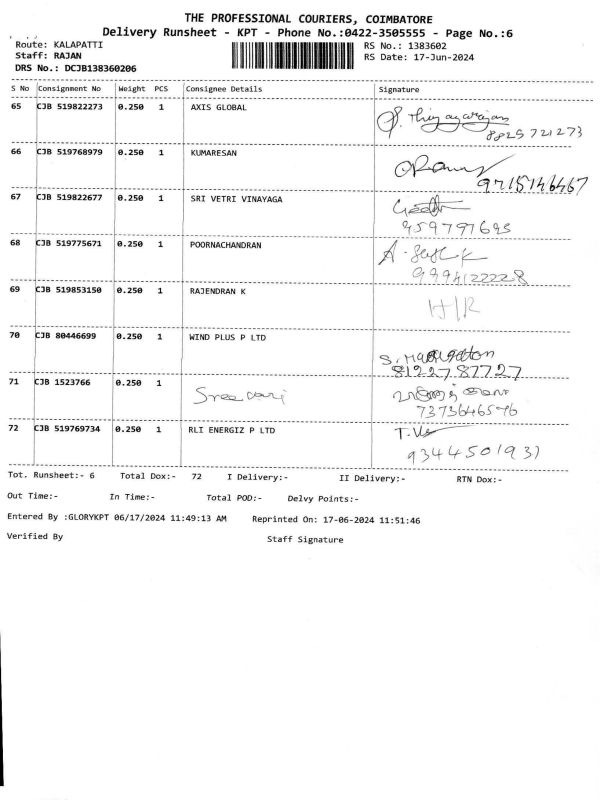 THE PROFESSIONAL COURIERS, COIMBATORE
Delivery Runsheet - KPT - Phone No.:0422-3505555 - Page No.:6
Route: KALAPATTI
RS No.: 1383602
Staff: RAJAN
RS Date: 17-Jun-2024
DRS No.: DCJB138360206
S No Consignment No Weight PCS Consignee Details Signature
65 CJB 519822273 0.250 1 AXIS GLOBAL
8825721273
66 CJB 519768979 0.250 1 KUMARESAN
9715146467
67 CJB 519822677 0.250 1 SRI VETRI VINAYAGA
959797693
68 CJB 519775671 0.250 1 POORNACHANDRAN
9994122228
69 CJB 519853150 0.250 1 RAJENDRAN K
H/R
70 CJB 80446699 0.250 1 WIND PLUS P LTD
8122787727
71 CJB 1523766 0.250 1 Sree vari
7373646576
72 CJB 519769734 0.250 1 RLI ENERGIZ P LTD
9344501931
Tot. Runsheet:- 6 Total Dox:- 72 I Delivery:- II Delivery:- RTN Dox:-
Out Time:- In Time:- Total POD:- Delvy Points:-
Entered By :GLORYKPT 06/17/2024 11:49:13 AM Reprinted On: 17-06-2024 11:51:46
Verified By Staff Signature